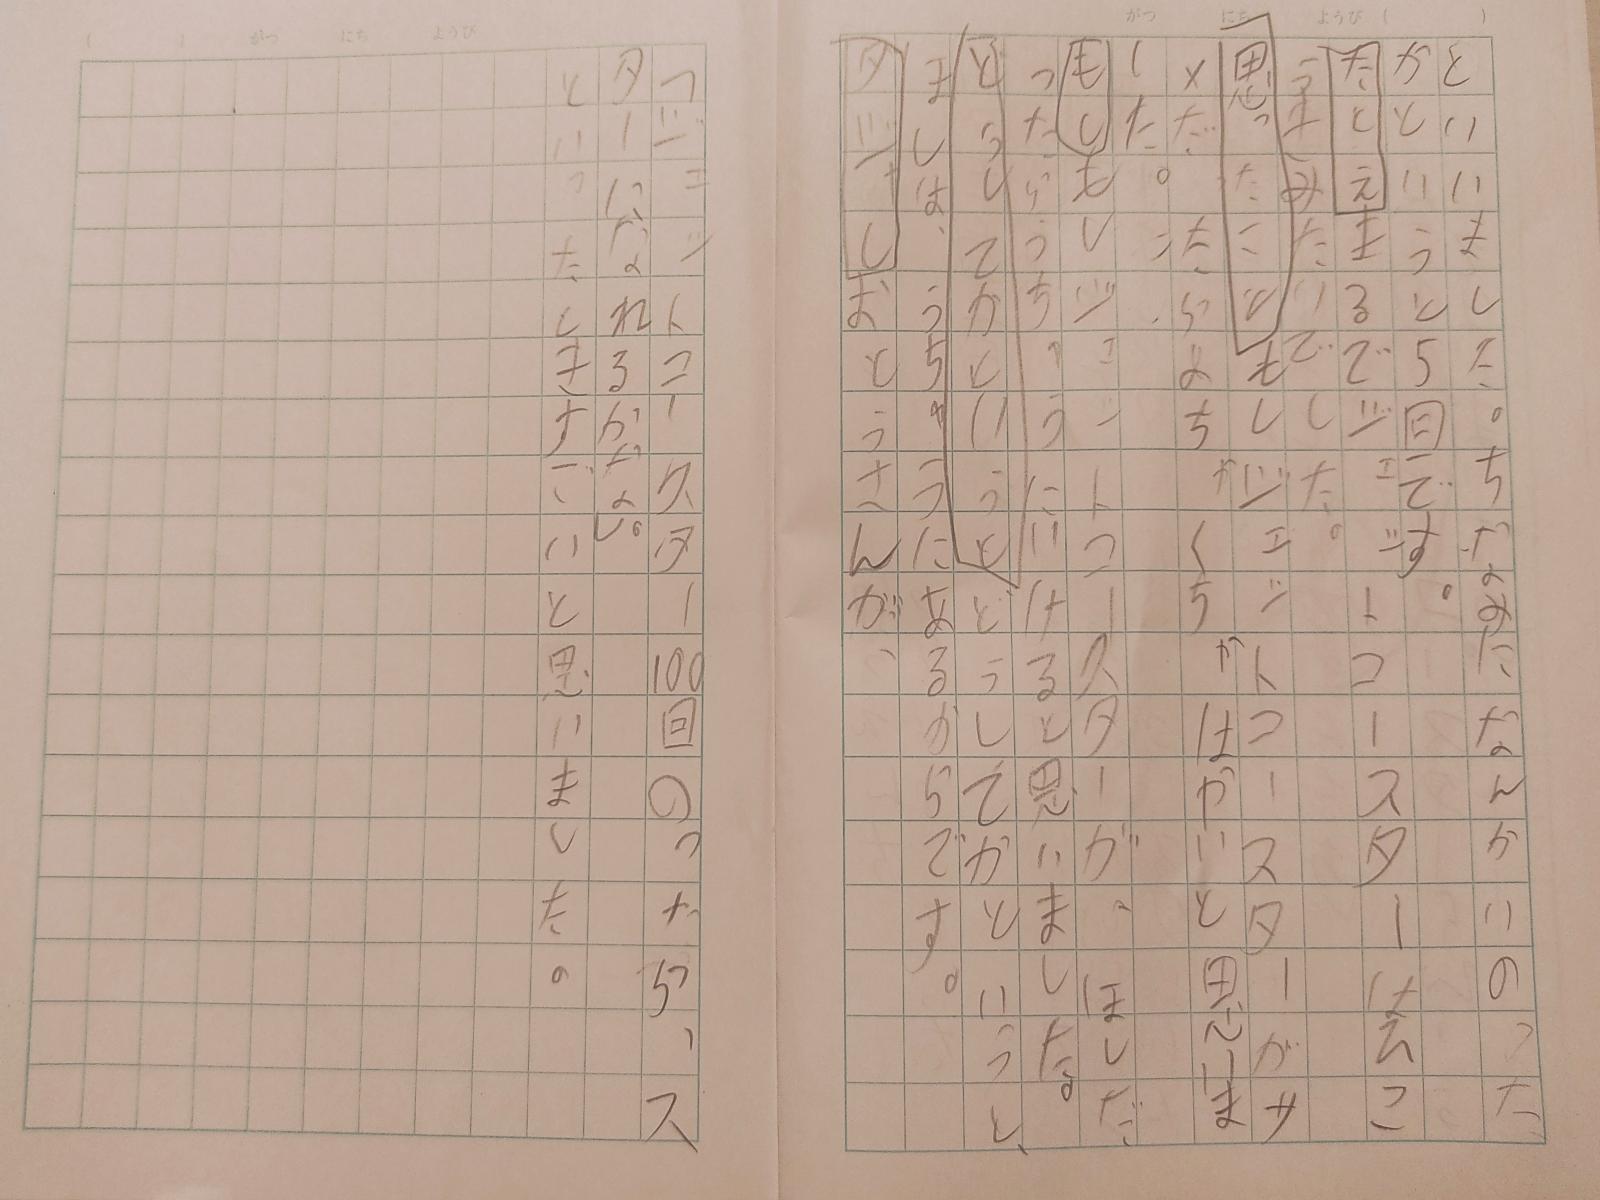 がつ にち ようび ( )
といいました。ちなみになんかいのった
かというと5回です。
たとえまるでジェットコースターはひこ
うきみたいでした。
思ったこともしジェットコースターがサ
メだったら はかいと思いま
した。
もしもしジェットコースターが、ほしだ
ったらうちゅうにいけると思いました。
どうしてかというとどうしてかというと、
ほしは、うちゅうにあるからです。
おとうさんが、
( ) がつ にち ようび
つジェットコースター100回のったら、ス
ターになれるかな」。
といったときすごいと思いました。